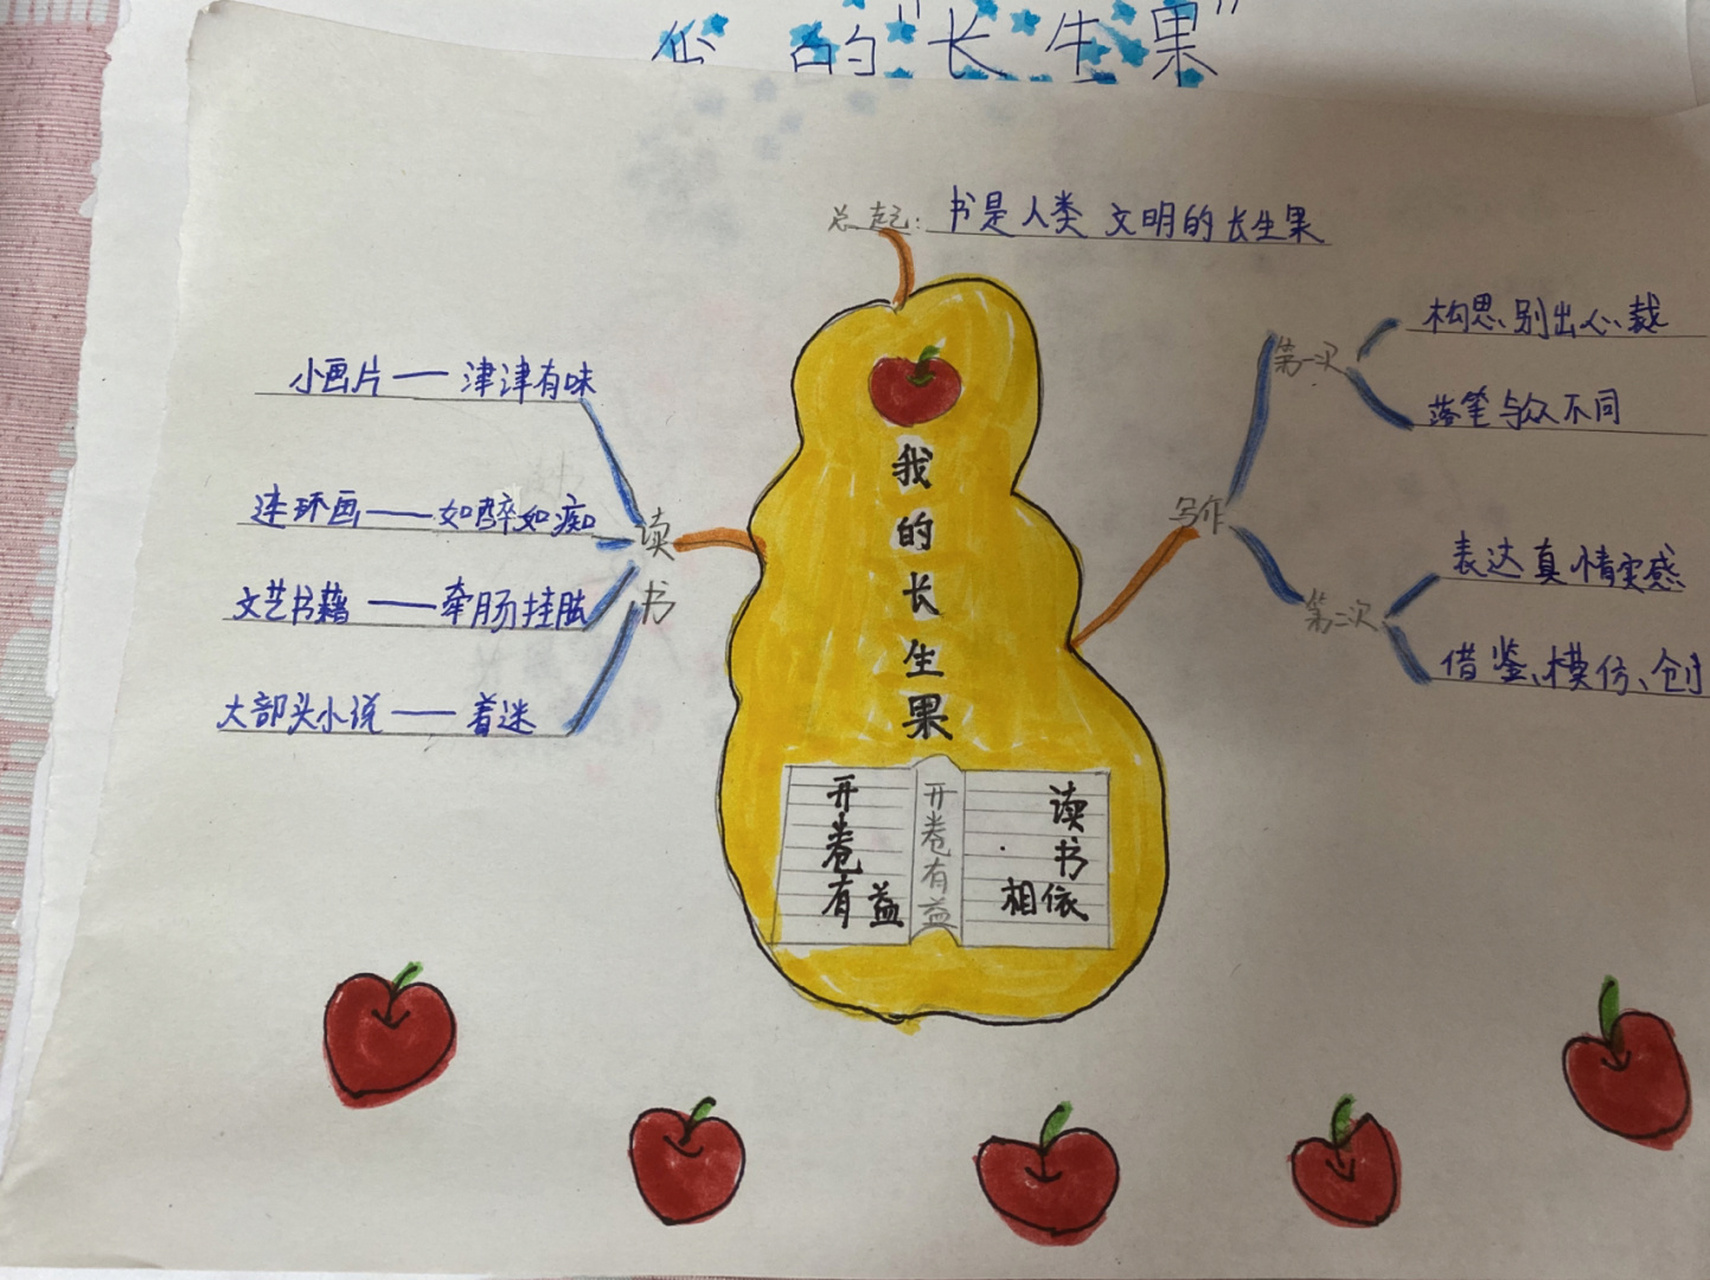 的"长生果"
总起:书是人类文明的长生果
小画片——津津有味
连环画——如醉如痴
文艺书籍——牵肠挂肚
大部头小说——着迷
读书
我的长生果
开卷有益
开卷有益
读书相依
写作
第一次
构思别出心裁
落笔与众不同
第二次
表达真情实感
借鉴、模仿、创